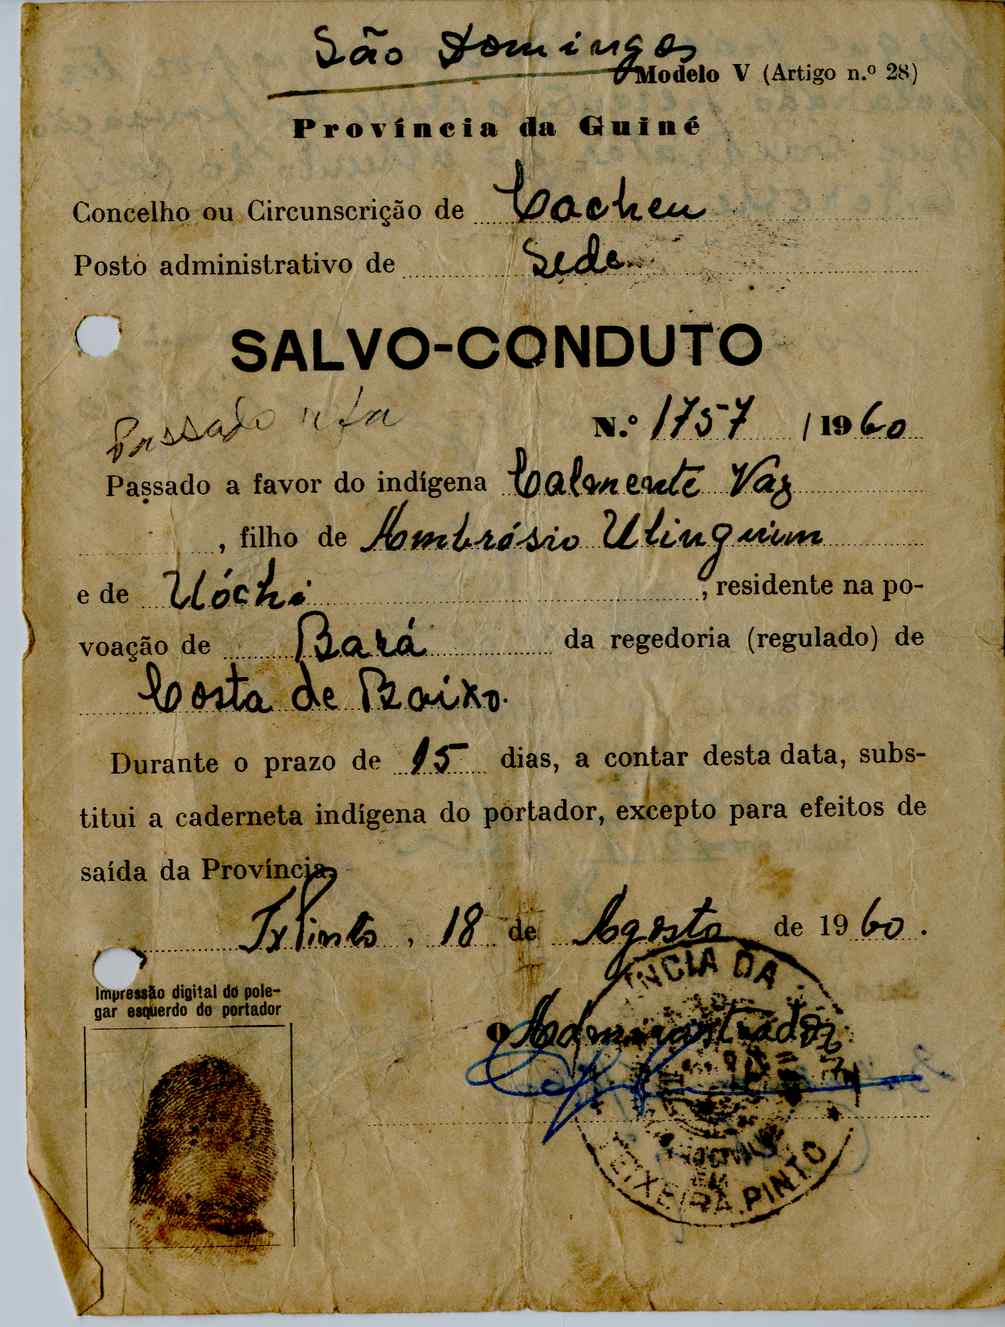 São Domingos
Modelo V (Artigo n.º 28)
Província da Guiné
Concelho ou Circunscrição de Cacheu
Posto administrativo de Sede
SALVO-CONDUTO
Passado
N.º 1757 / 1960
Passado a favor do indígena Calmente Vaz
, filho de Ambrósio Utinguim
e de Uóchi , residente na po-
voação de Bará da regedoria (regulado) de
Costa de Baixo.
Durante o prazo de 15 dias, a contar desta data, subs-
titui a caderneta indígena do portador, excepto para efeitos de
saída da Província.
Tx Pinto, 18 de Agosto de 1960.
Impressão digital do pole-
gar esquerdo do portador
O Administrador
NCIA DA
TEIXEIRA PINTO